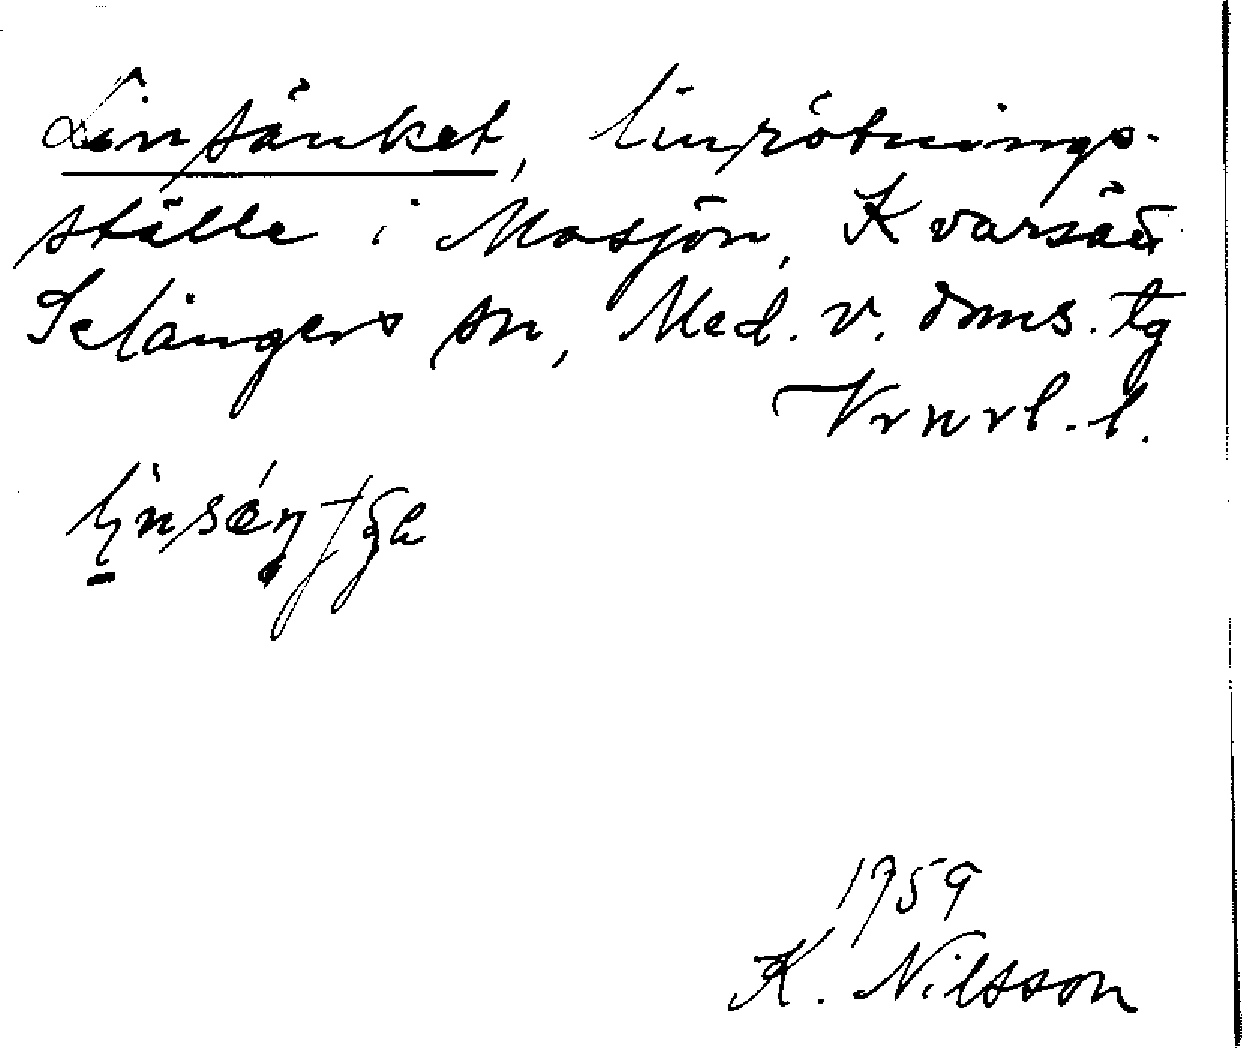 Linsänket, linrötnings-
ställe i Mosjön, Kvarsätt
Selångers sn, Med. v. doms. tg
Vrnrl. l.
1959
K. Nilsson